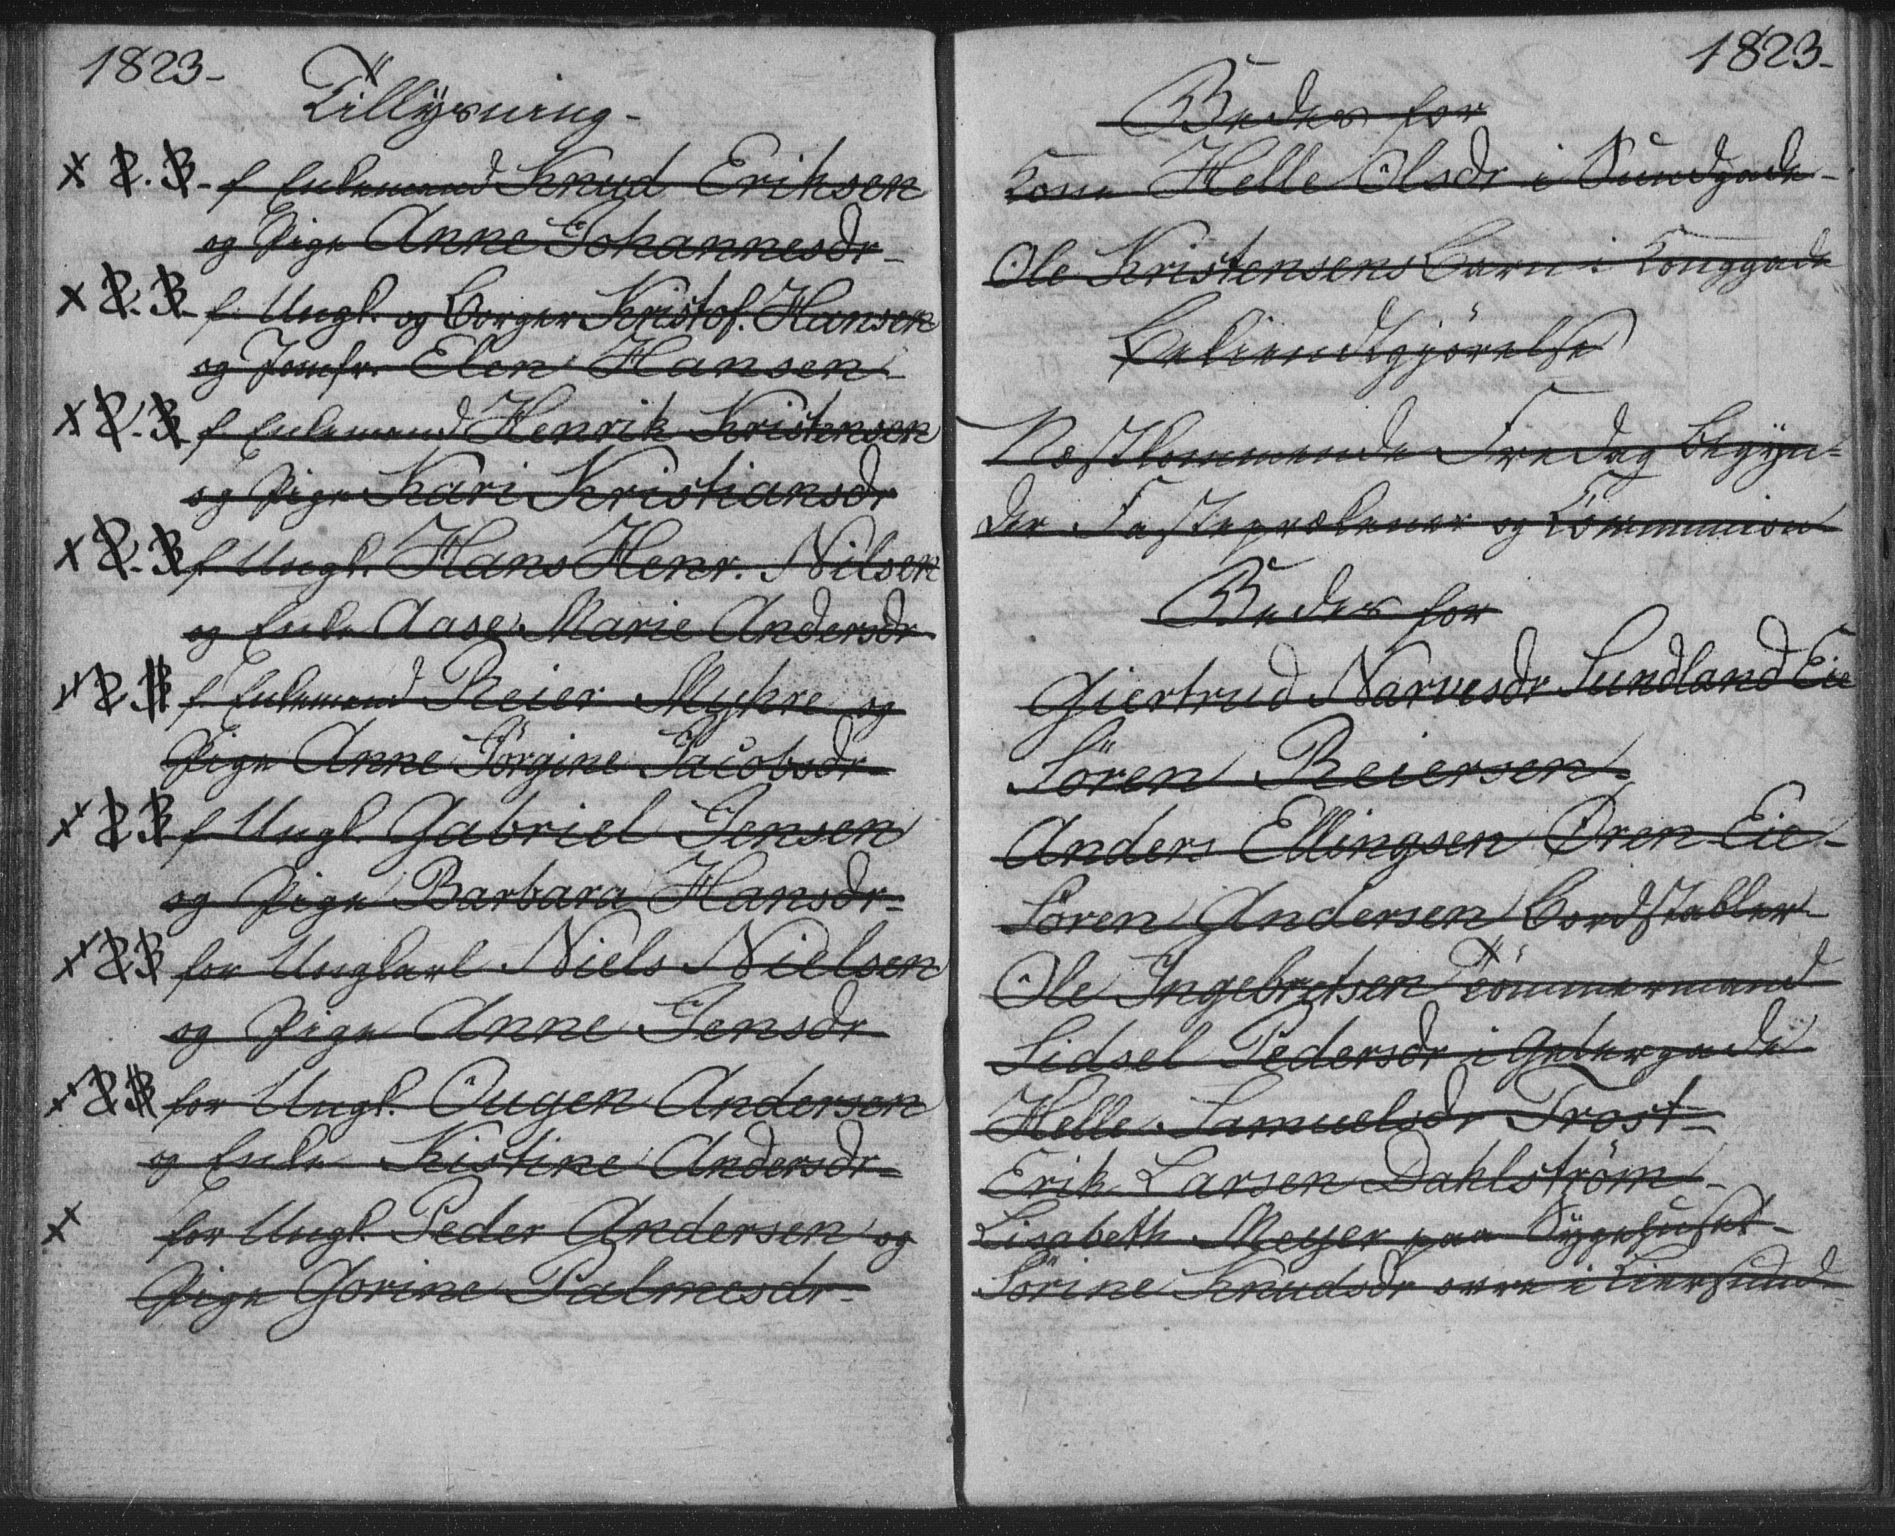 1823-
Tillysning-
x P. B. f Enkemand Knud Eriksen
og Pige Anne Johannesdr-
x P. B. f. Ungk. og Borger Kristof. Hansen
og Jomfr. Elen Hansen-
x P. B. f Enkemand Henrik Kristensen
og Pige Kari Kristiansdr
x P. B. f Ungk. Hans Henr. Nilsen
og Enke Aase Marie Andersdr
P. B. f. Enkemand Reier Myhre og
Pige Anne Jörgine Jacobsdr-
x P B f Ungk. Gabriel Jensen
og Pige Barbara Hansdr-
x P B for Ungkarl Niels Nielsen
og Pige Anne Jensdr
x P B for Ungk. Ougen Andersen
og Enke Kistine Andersdr-
x for Ungk. Peder Andersen og
Pige Gorine Palmesdr-
1823-
Bedes for
Kone Helle Olsdr i Sundgade-
Ole Kristensens Barn i Konggade
Bekiendtgjörelse
Næstkommende Fredag begyn-
der Fasteprækener og Communion
Bedes for
Giertrud Narvesdr Sundland Eie
Sören Reiersen-
Anders Ellingsen Øren Eie-
Sören Andersen Bordstabler-
Ole Ingebretsen Tömmermand
Sidsel Pedersdr i
Helle Samuelsdr Trost-
Erik Larsen Dahlström-
Lisabeth Meyer paa Sygehuset-
Sörine Knudsdr i